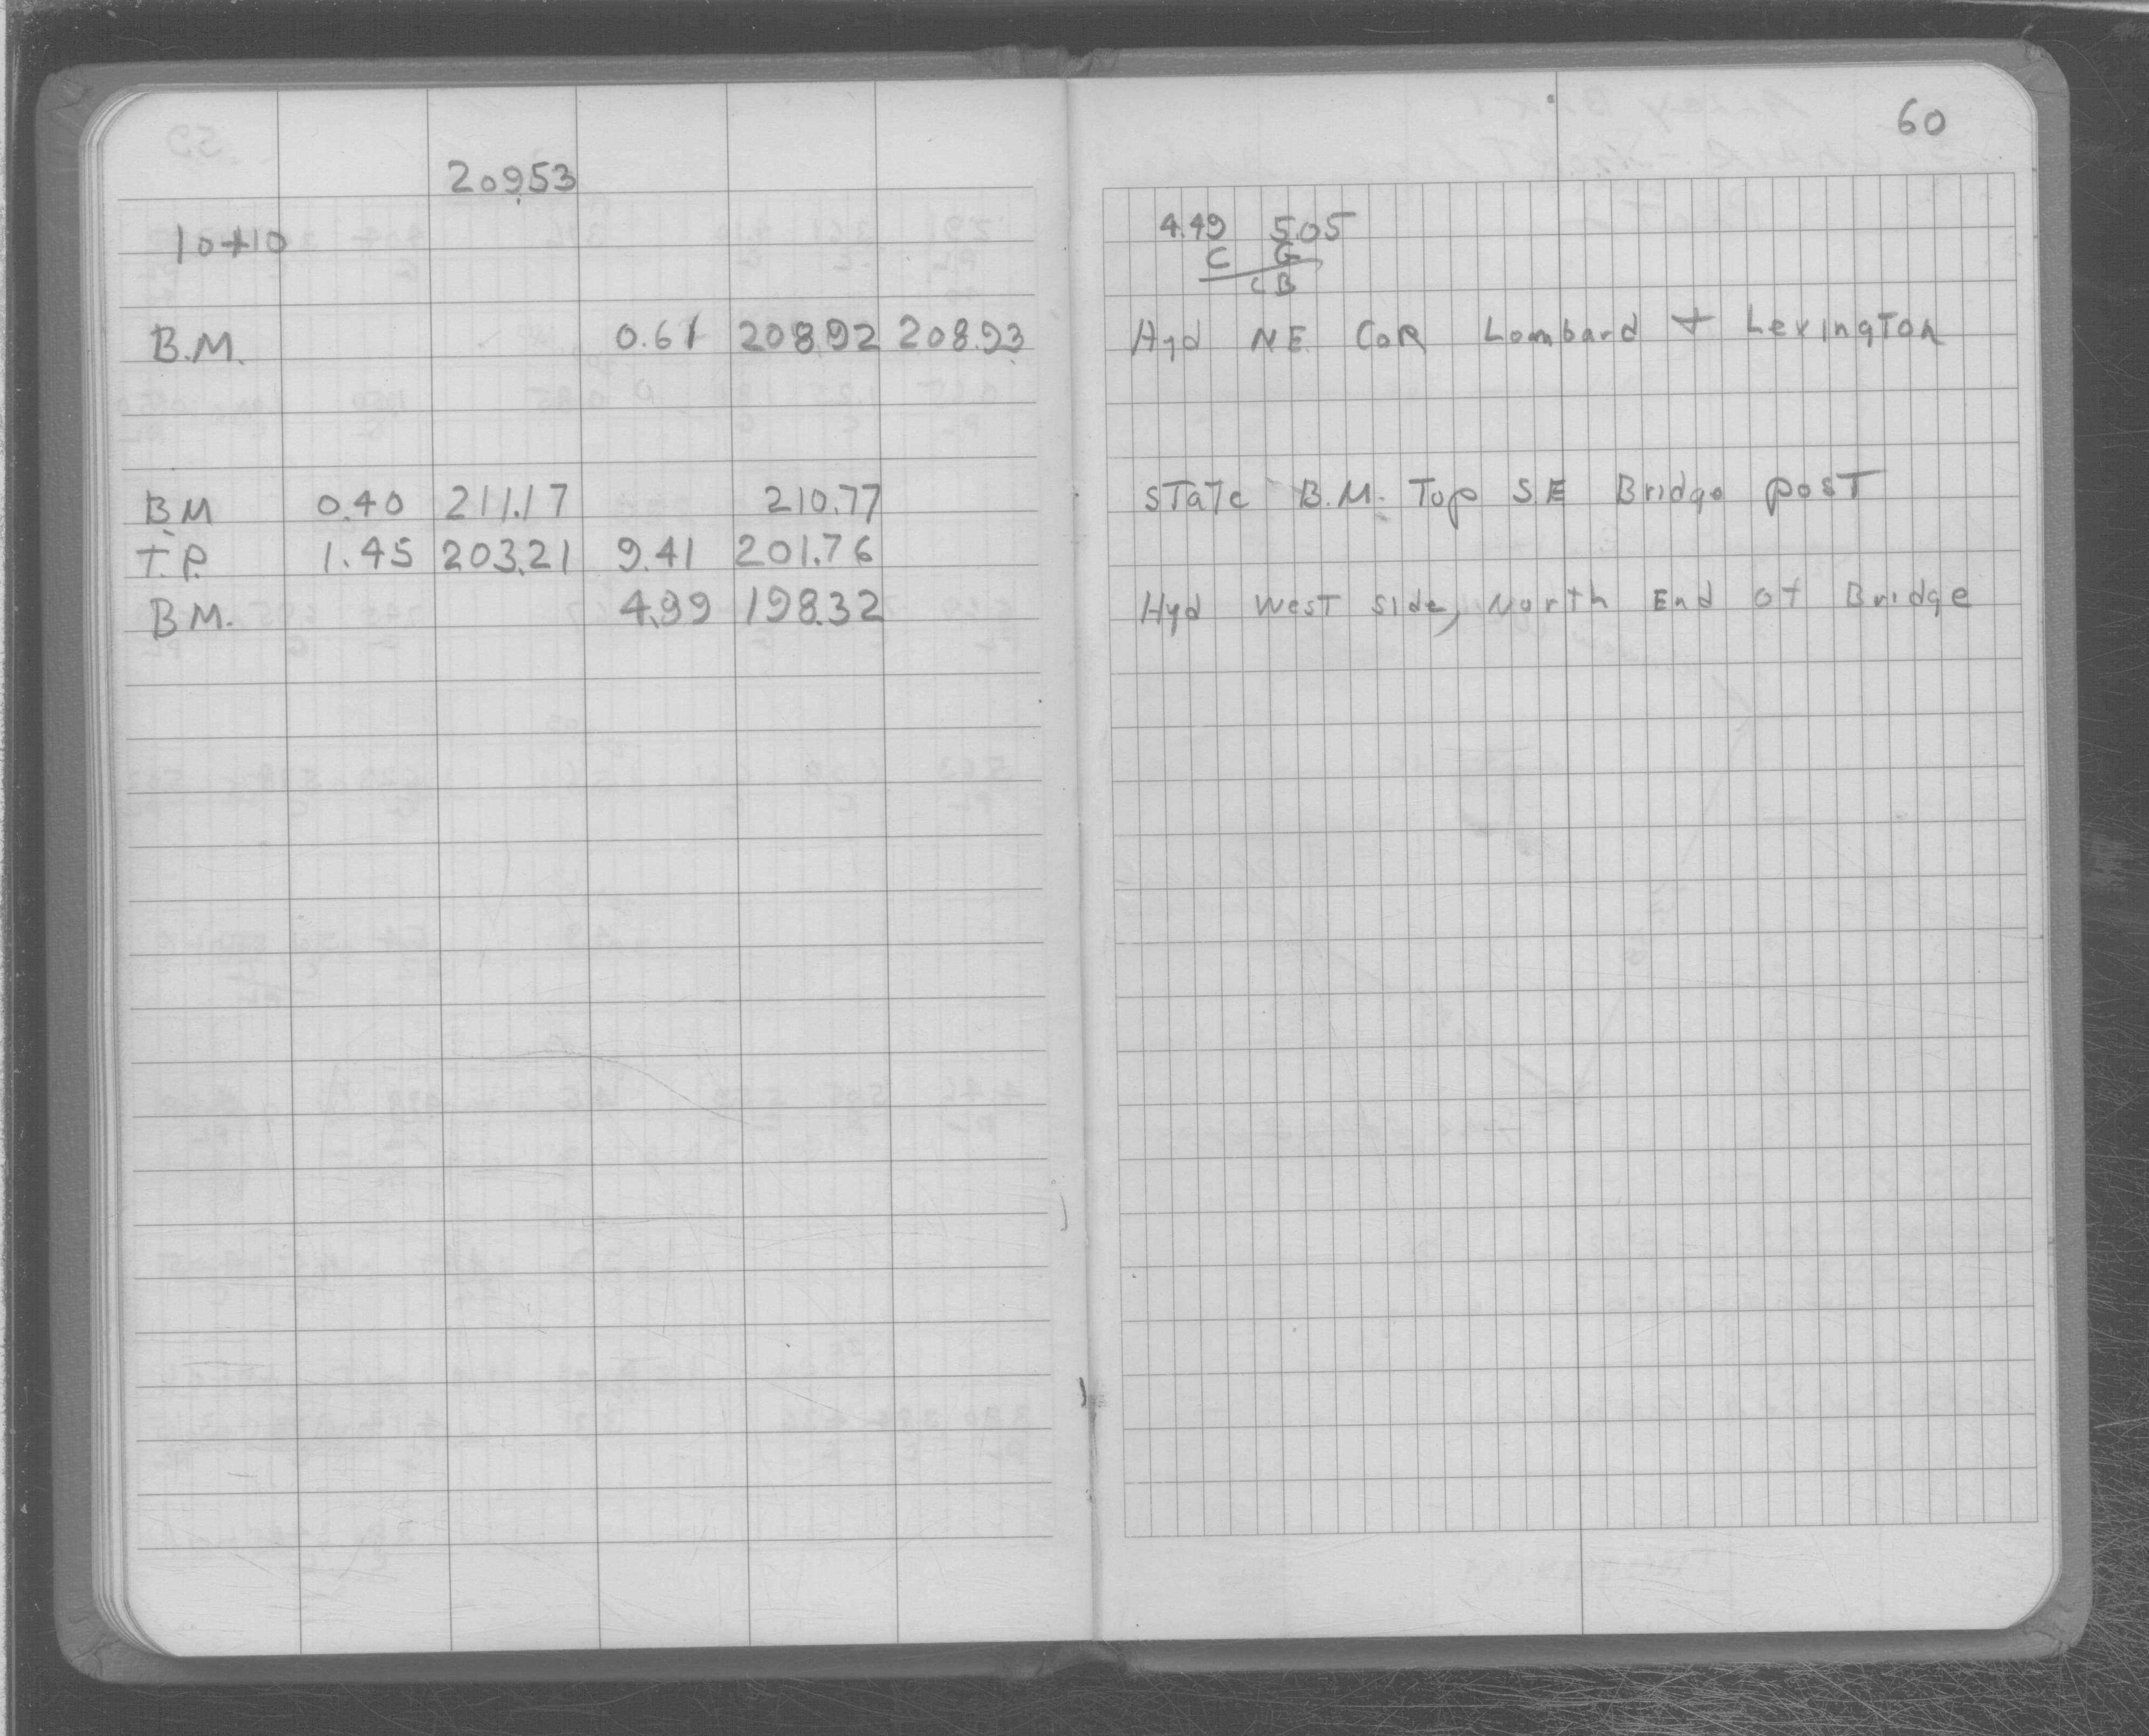 60
209.53
10+10 4.49 5.05
C G
CB
B.M. 0.61 208.92 208.93 Hyd NE. COR Lombard + Lexington
B.M 0.40 211.17 210.77 STaTe B.M. Top S.E Bridge posT
T.P. 1.45 203.21 9.41 201.76
B.M. 4.99 198.32 Hyd WesT side, North End of Bridge